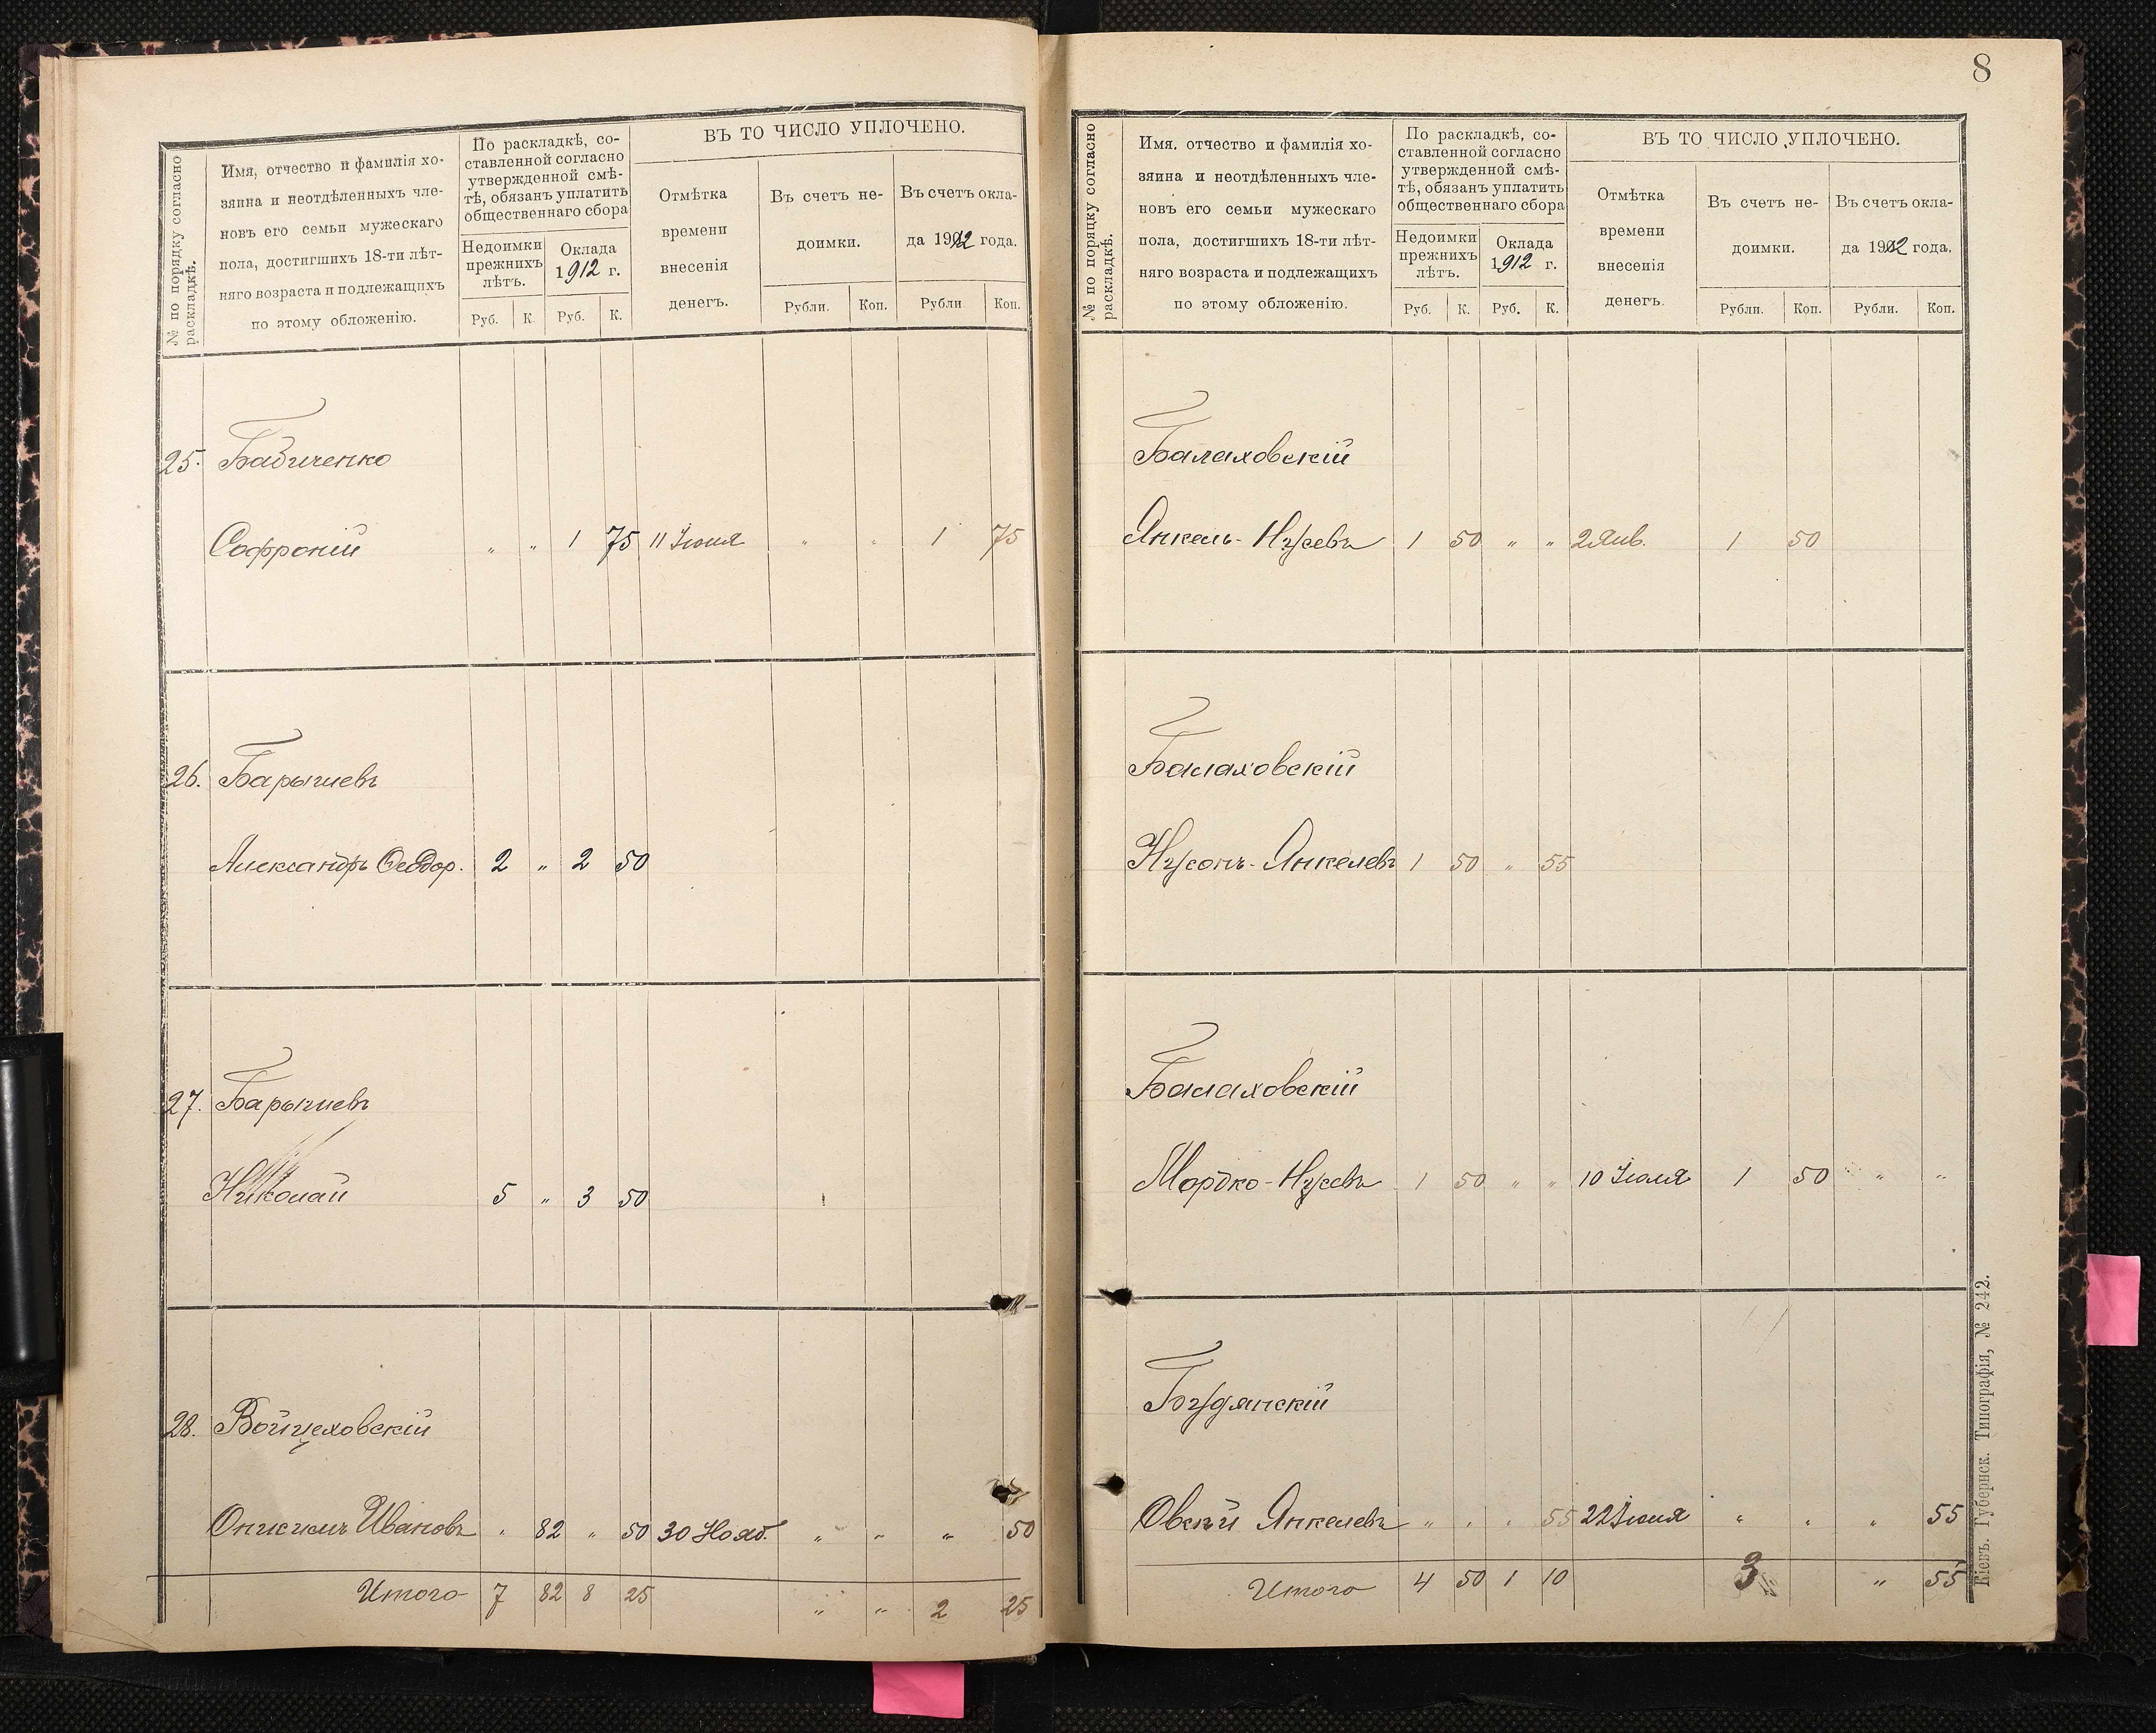 № по порядку согласно
раскладкѣ.
Имя, отчество и фамилія хо-
зяина и неотдѣленныхъ чле-
новъ его семьи мужескаго
пола, достигшихъ 18-ти лѣт-
няго возраста и подлежащихъ
по этому обложенію.
По раскладкѣ, со-
ставленной согласно
утвержденной смѣ-
тѣ, обязанъ уплатить
общественнаго сбора
Недоимки
прежнихъ
лѣтъ.
Оклада
1912 г.
Руб. К. Руб. К.
ВЪ ТО ЧИСЛО УПЛОЧЕНО.
Отмѣтка
времени
внесенія
денегъ.
Въ счетъ не-
доимки.
Рубли. Коп.
Въ счетъ окла-
да 1912 года.
Рубли Коп.
25. Бабиченко
Софроній " " 1 75 11 Іюня " " 1 75
26. Барышевъ
Александръ Ѳеодор. 2 " 2 50
27. Барышевъ
Николай 5 " 3 50
28. Войцеховскій
Онисимъ Ивановъ " 82 " 50 30 Нояб. " " " 50
Итого 7 82 8 25 " " 2 25
8
№ по поряцку согласно
раскладкѣ.
Имя. отчество и фамилія хо-
зяина и неотдѣленныхъ чле-
новъ его семьи мужескаго
пола, достигшихъ 18-ти лѣт-
няго возраста и подлежащихъ
по этому обложенію.
По раскладкѣ, со-
ставленной согласно
утвержденной смѣ-
тѣ, обязанъ уплатить
общественнаго сбора
Недоимки
прежнихъ
лѣтъ.
Оклада
1912 г.
Руб. К. Руб. К.
ВЪ ТО ЧИСЛО УПЛОЧЕНО.
Отмѣтка
времени
внесенія
денегъ.
Въ счетъ не-
доимки.
Рубли. Коп.
Въ счетъ окла-
да 1912 года.
Рубли. Коп.
Балаховскій
Янкель-Нусевъ 1 50 " " 2 Янв. 1 50
Балаховскій
Нусонъ-Янкелевъ 1 50 " 55
Балаховскій
Мордко-Нусевъ 1 50 " " 10 Іюля 1 50 " "
Богдянскій
Овсѣй Янкелевъ " " " 55 22 Іюня " " " 55
Итого 4 50 1 10 3 " 55
Кіевъ. Губернск. Типографія, № 242.